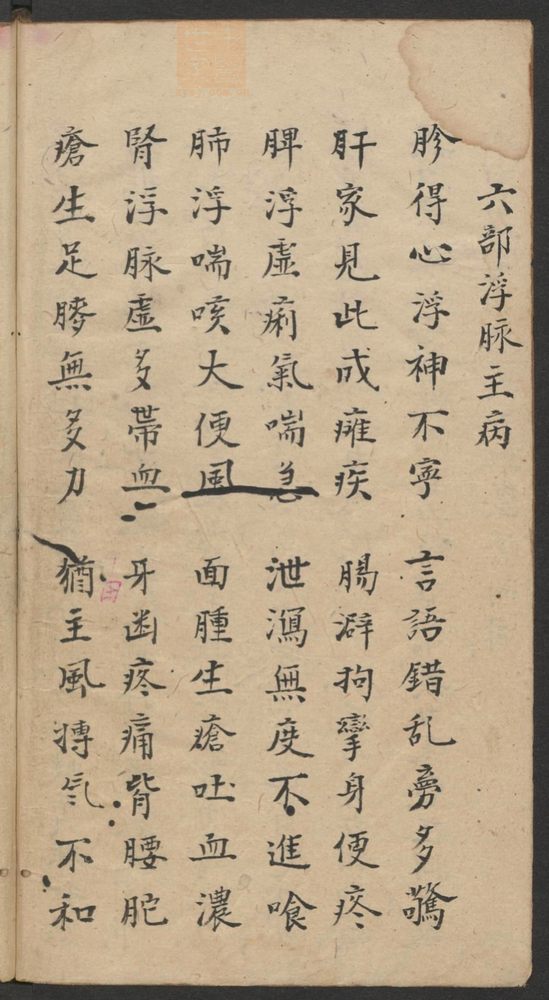 六部浮脉主病
胗得心浮神不寧 言語錯乱旁多驚
肝家見此成癱疾 腸澼拘攣身便疼
脾浮虛痢氣喘急 泄瀉無度不進飡
肺浮喘咳大便風 面腫生瘡吐血濃
腎浮脉虛多帶血 牙齿疼痛背腰肐
瘡生足膝無多力 猶主風摶氕不和